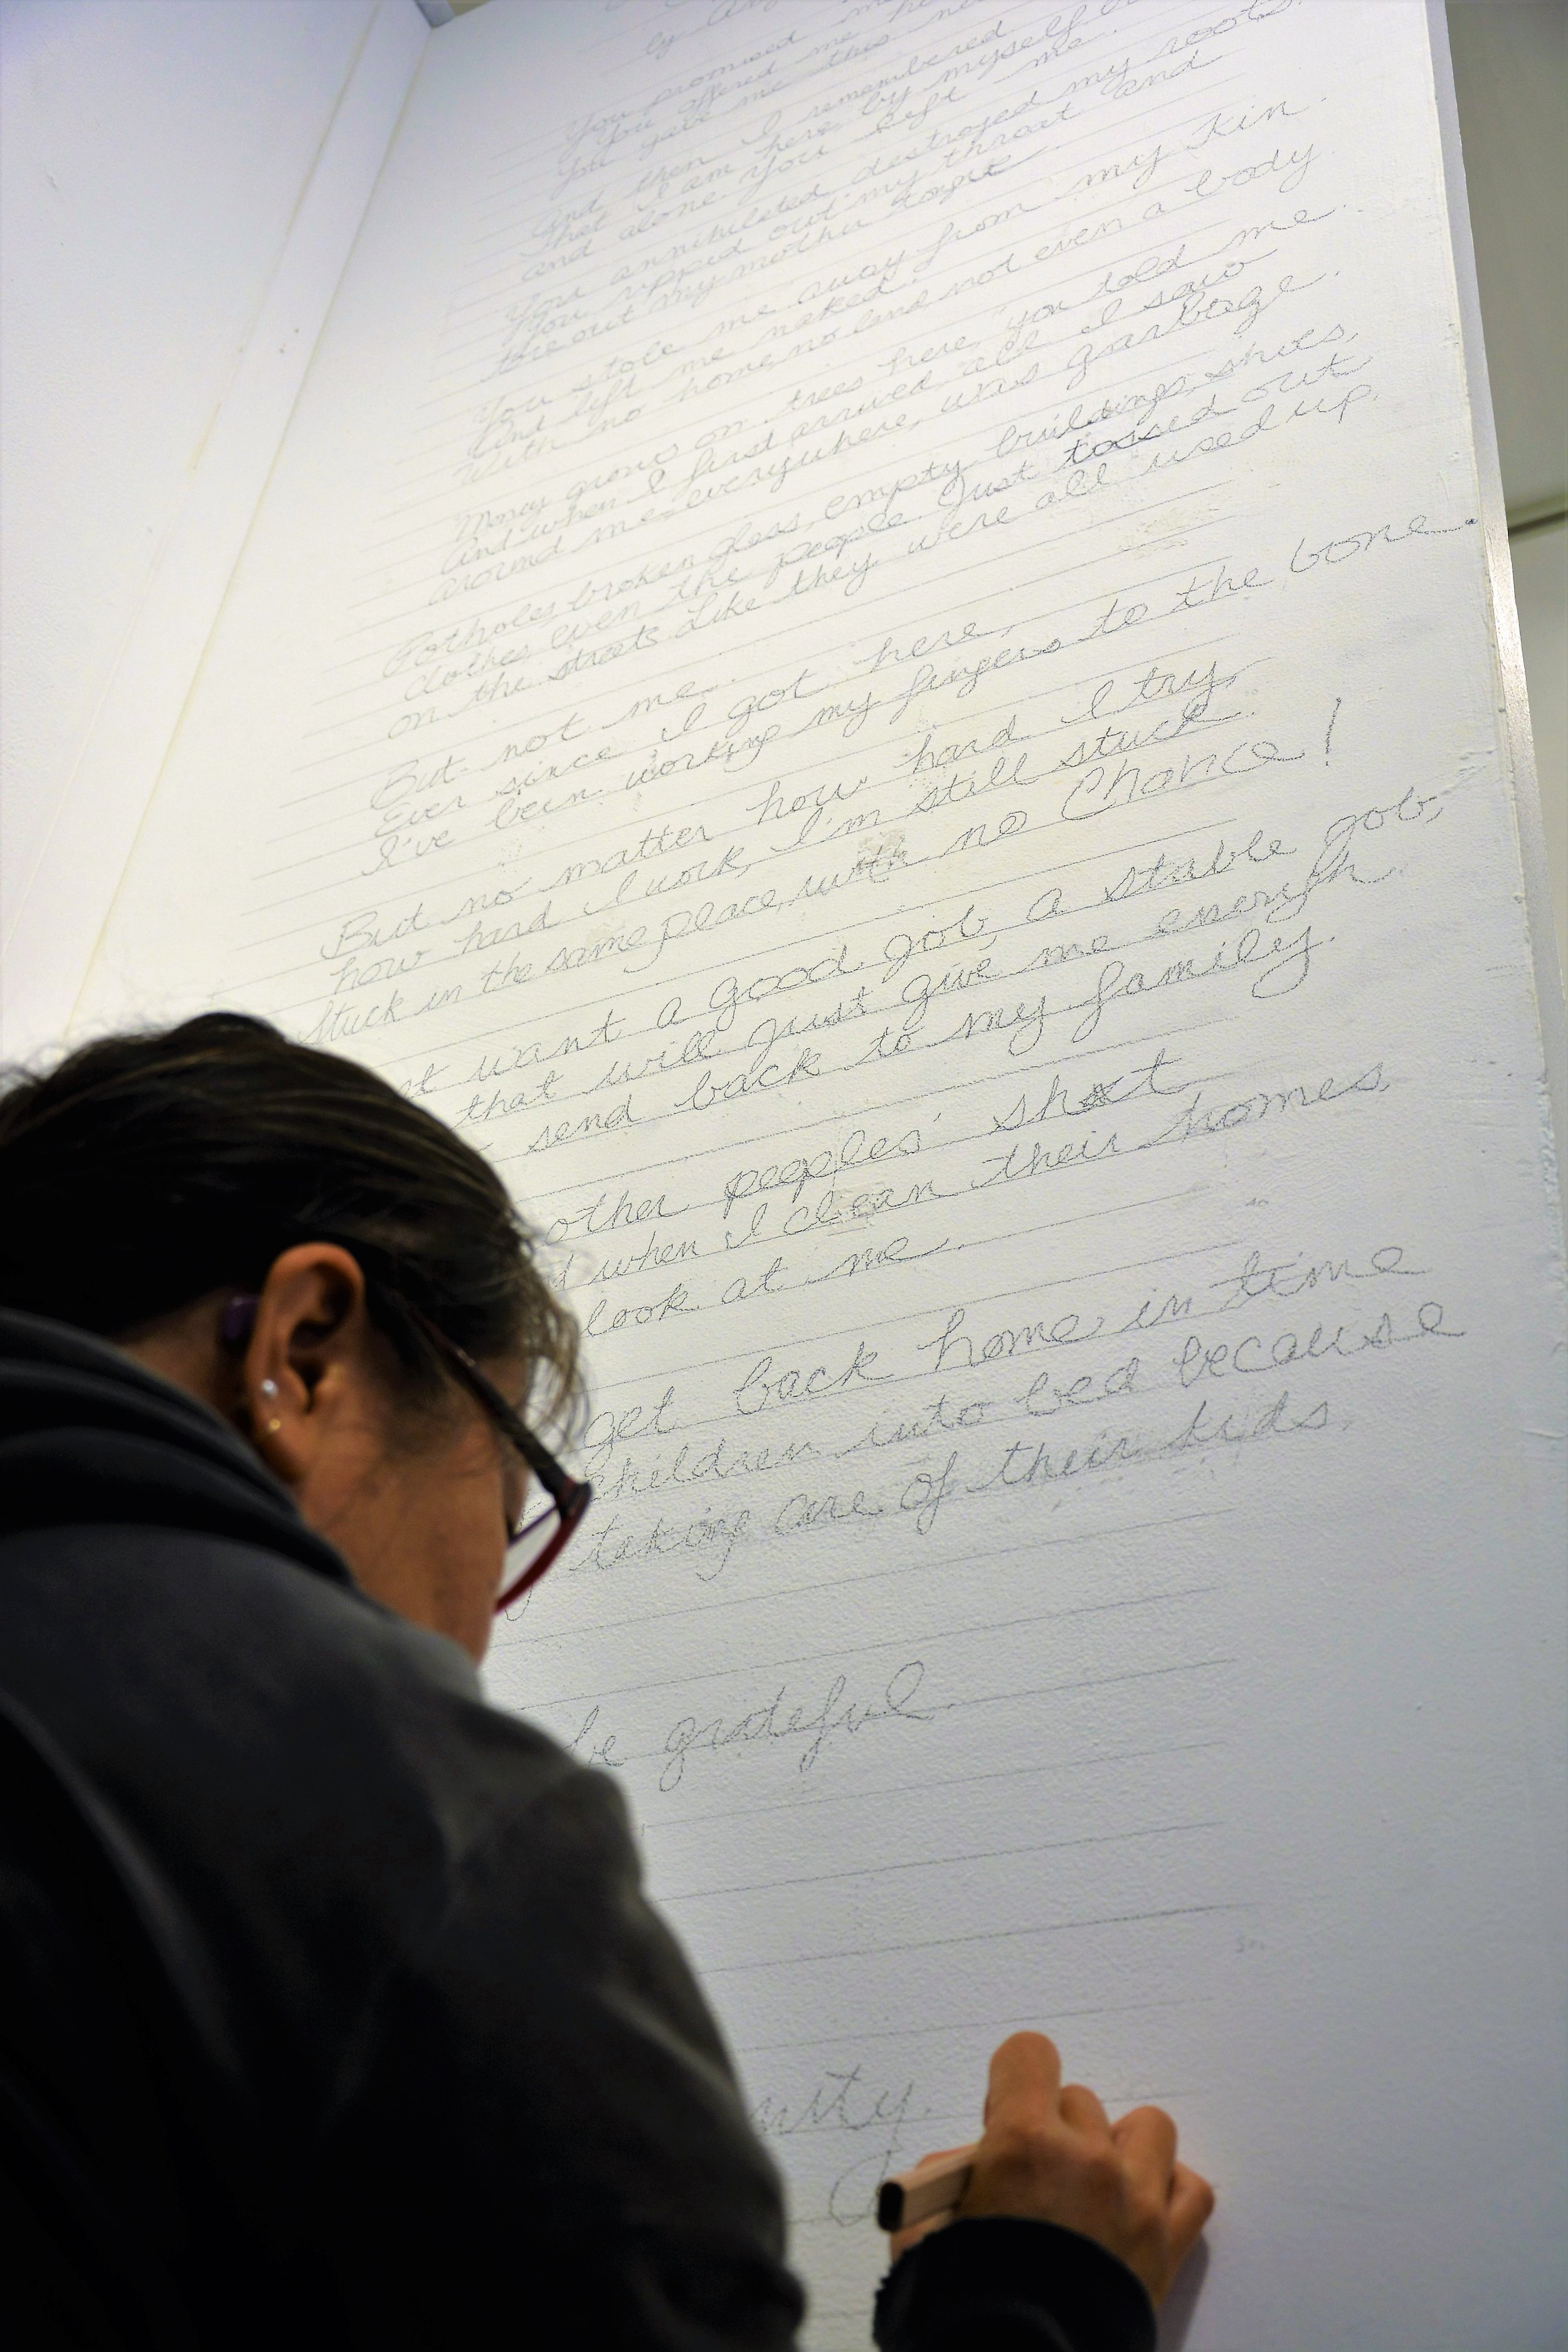 by
You promised
You offered me
You gave me this
And then I remembered
That I am here by myself
and alone. You left me.
You annihilated destroyed my roots.
You ripped out my throat and
tore out my mother tongue
You stole me away from my Kin.
And left me naked.
With no home, no land not even a body
Money grows on trees here, you told me.
And when I first arrived all I saw
around me everywhere, was garbage.
Potholes broken glass, empty buildings, shoes,
clothes, even the people just tossed out
on the streets like they were all used up.
But not me.
Ever since I got here,
I've been working my fingers to the bone.
But no matter how hard I try,
how hard I work, I'm still stuck.
Stuck in the same place, with no Chance!
want a good job, a stable job,
that will just give me enough
send back to my family.
other peoples' shit
when I clean their homes,
look at me.
get back home in time
children into bed because
taking care of their kids
be grateful.